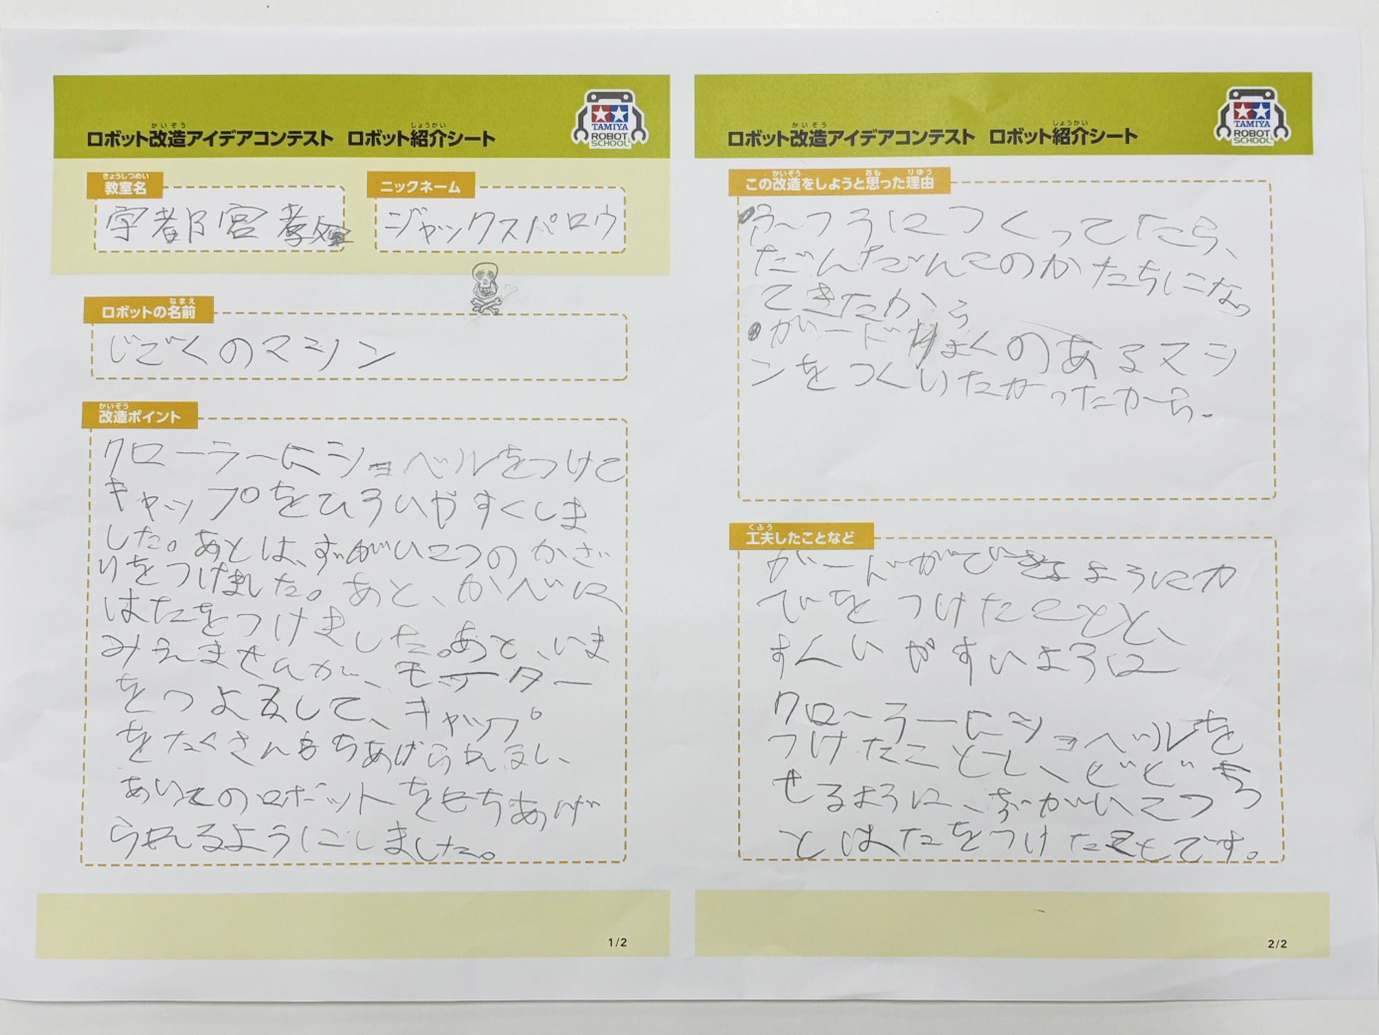 ロボット改造アイデアコンテスト ロボット紹介シート
かいぞう しょうかい
TAMIYA
ROBOT
SCHOOL
きょうしつめい
教室名
宇都宮教室
ニックネーム
ジャックスパロウ
なまえ
ロボットの名前
じごくのマシン
かいぞう
改造ポイント
クローラーにショベルをつけて
キャップをひろいやすくしま
した。あとは、ずがいこつのかざ
りをつけました。あと、かべに
はたをつけました。あと、いま
みえませんが、モーター
をつよくして、キャップ
をたくさんもちあげられるし、
あいてのロボットをもちあげ
られるようにしました。
1/2
ロボット改造アイデアコンテスト ロボット紹介シート
かいぞう しょうかい
TAMIYA
ROBOT
SCHOOL
かいぞう おも りゆう
この改造をしようと思った理由
ふつうにつくってたら、
だんだんこのかたちになっ
てきたから
ガードりょくのあるマシ
ンをつくりたかったから。
くふう
工夫したことなど
ガードができるようにカ
べをつけたことと、
すくいやすいように
クローラーにショベルを
つけたことと、
せるように、ずがいこつ
とはたをつけたことです。
2/2